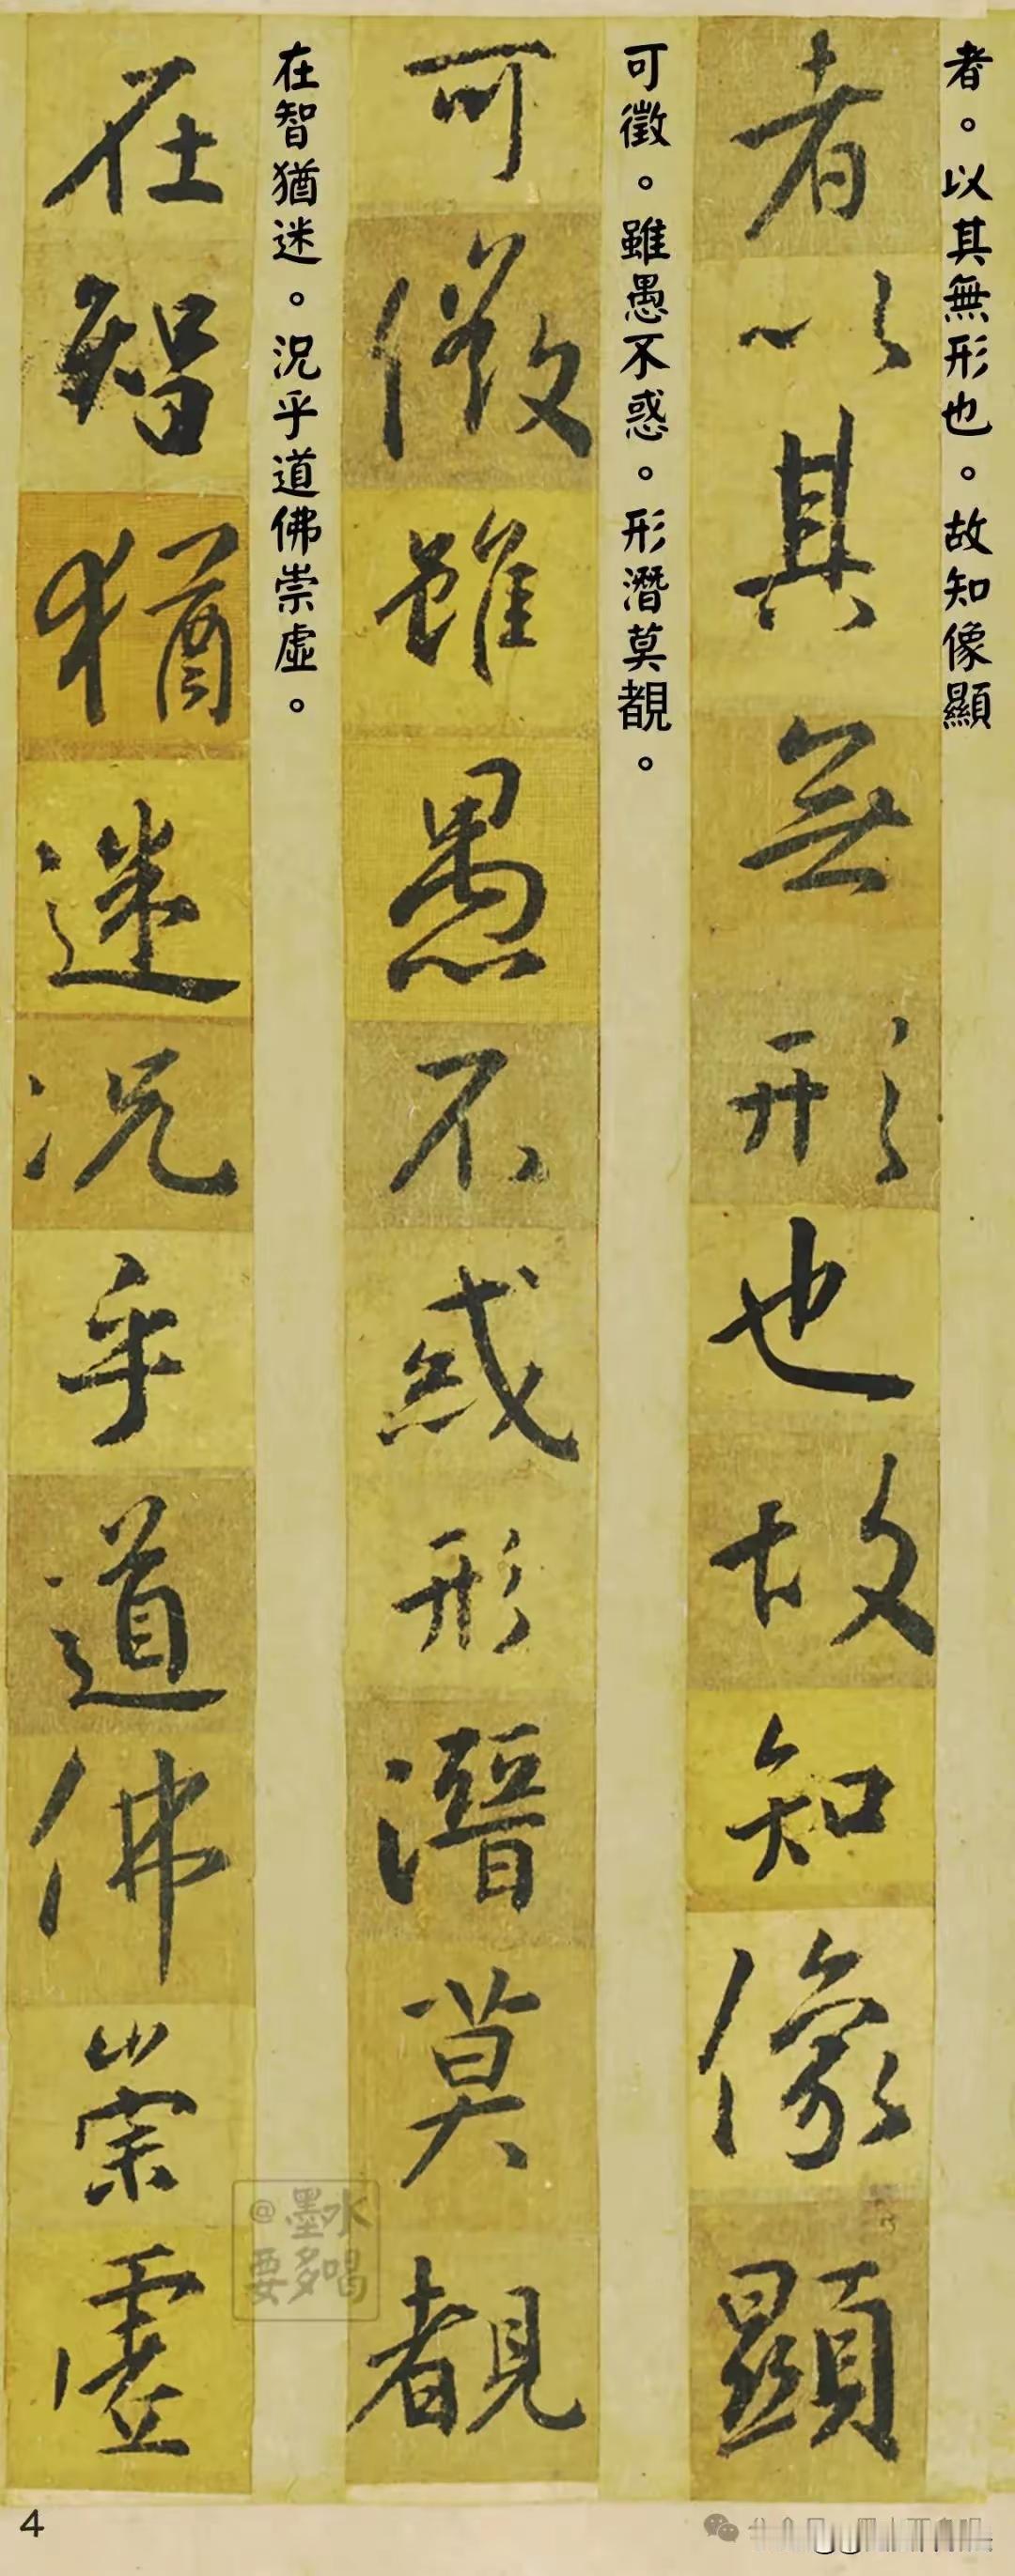 者。以其無形也。故知像顯
者以其無形也故知像顯
可徵。雖愚不惑。形潛莫覩。
可徵雖愚不惑形潛莫覩
在智猶迷。況乎道佛崇虛。
在智猶迷況乎道佛崇虛
@墨水
要多喝
4